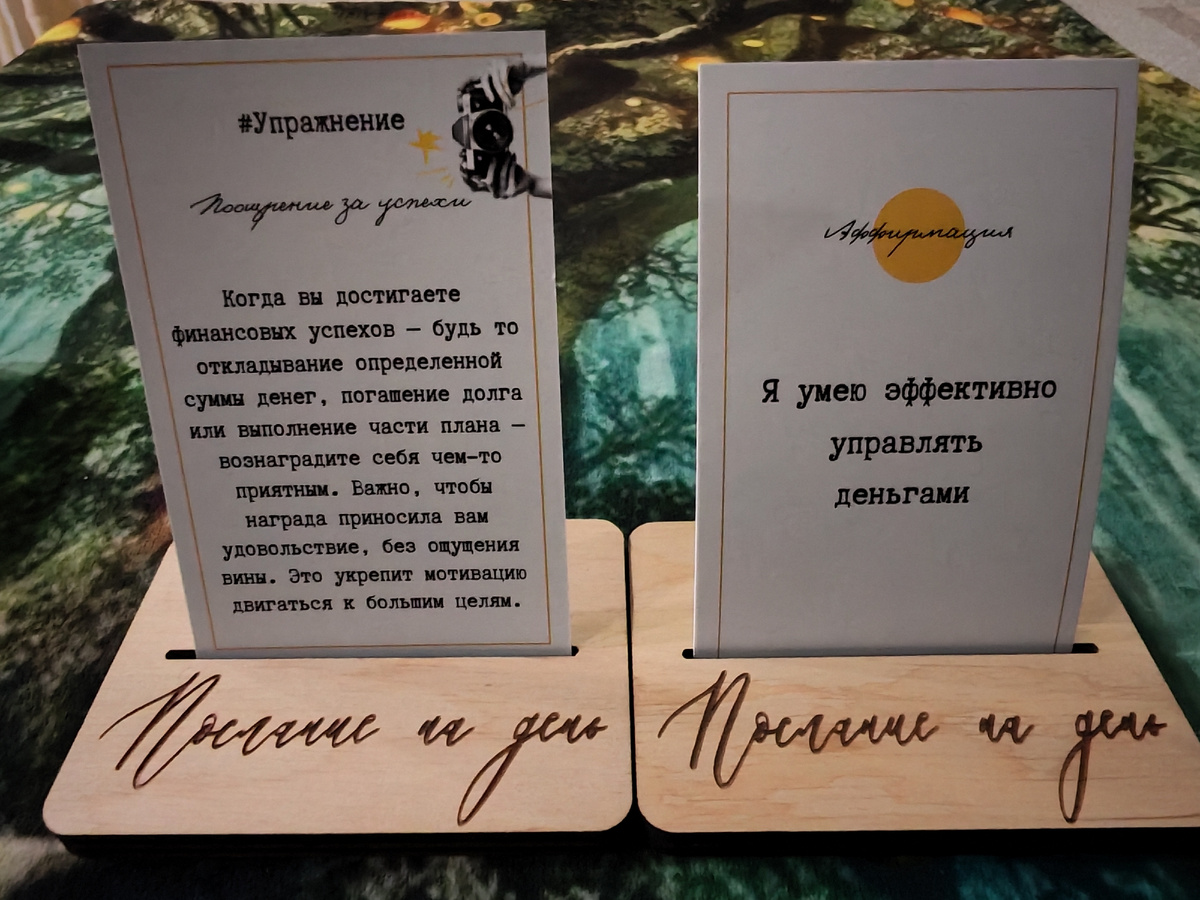 #Упражнение
Поощрение за успехи
Когда вы достигаете
финансовых успехов — будь то
откладывание определенной
суммы денег, погашение долга
или выполнение части плана —
вознаградите себя чем-то
приятным. Важно, чтобы
награда приносила вам
удовольствие, без ощущения
вины. Это укрепит мотивацию
двигаться к большим целям.
Послание на день
Аффирмация
Я умею эффективно
управлять
деньгами
Послание на день